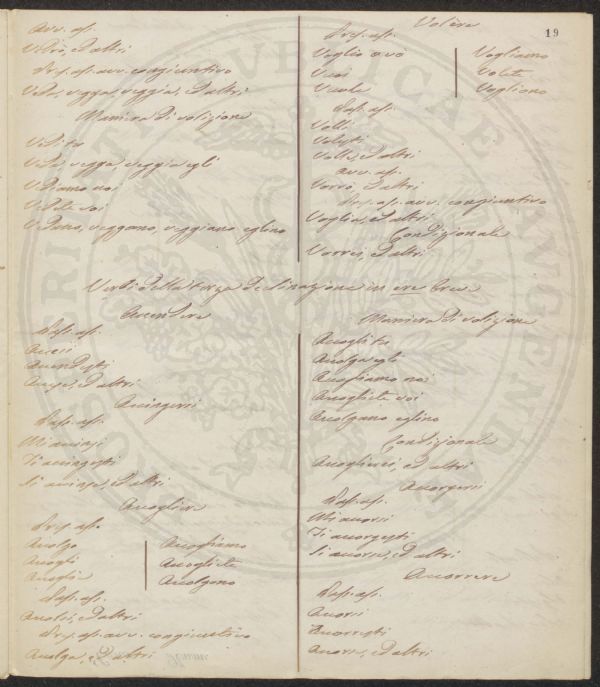 19
avv. as.
Vedrò, ed altri
Pres. as. avv. congiuntivo
Veda, vegga, veggia, ed altri
Maniera di volizione
Vedi tu
Veda, vegga, veggia egli
Vediamo noi
Vedete voi
Vedano, veggano, veggiano eglino
Volére
Pres. as.
Voglio o vo
Vuoi
Vuole
Vogliamo
Volete
Vogliono
Pass. as.
Volli
Volesti
Volle, ed altri
avv. as.
Vorrò, ed altri
Pres. as. avv. congiuntivo
Voglia, ed altri
Condizionale
Vorrei, ed altri
Verbi della terza declinazione in ere breve
Accendere
Pass. as.
Accesi
Accendesti
Accese, ed altri
Accingersi
Pass. as.
Mi accinsi
Ti accingesti
Si accinse, ed altri
Accogliere
Pres. as.
Accolgo
Accogli
Accoglie
Accogliamo
Accogliete
Accolgono
Pass. as.
Accolsi, ed altri
Pres. as. avv. congiuntivo
Accolga, ed altri
Maniera di volizione
Accogli tu
Accolga egli
Accogliamo noi
Accogliete voi
Accolgano eglino
Condizionale
Accoglierei, ed altri
Accorgersi
Pass. as.
Mi accorsi
Ti accorgesti
Si accorse, ed altri
Accorrere
Pass. as.
Accorsi
Accorresti
Accorse, ed altri